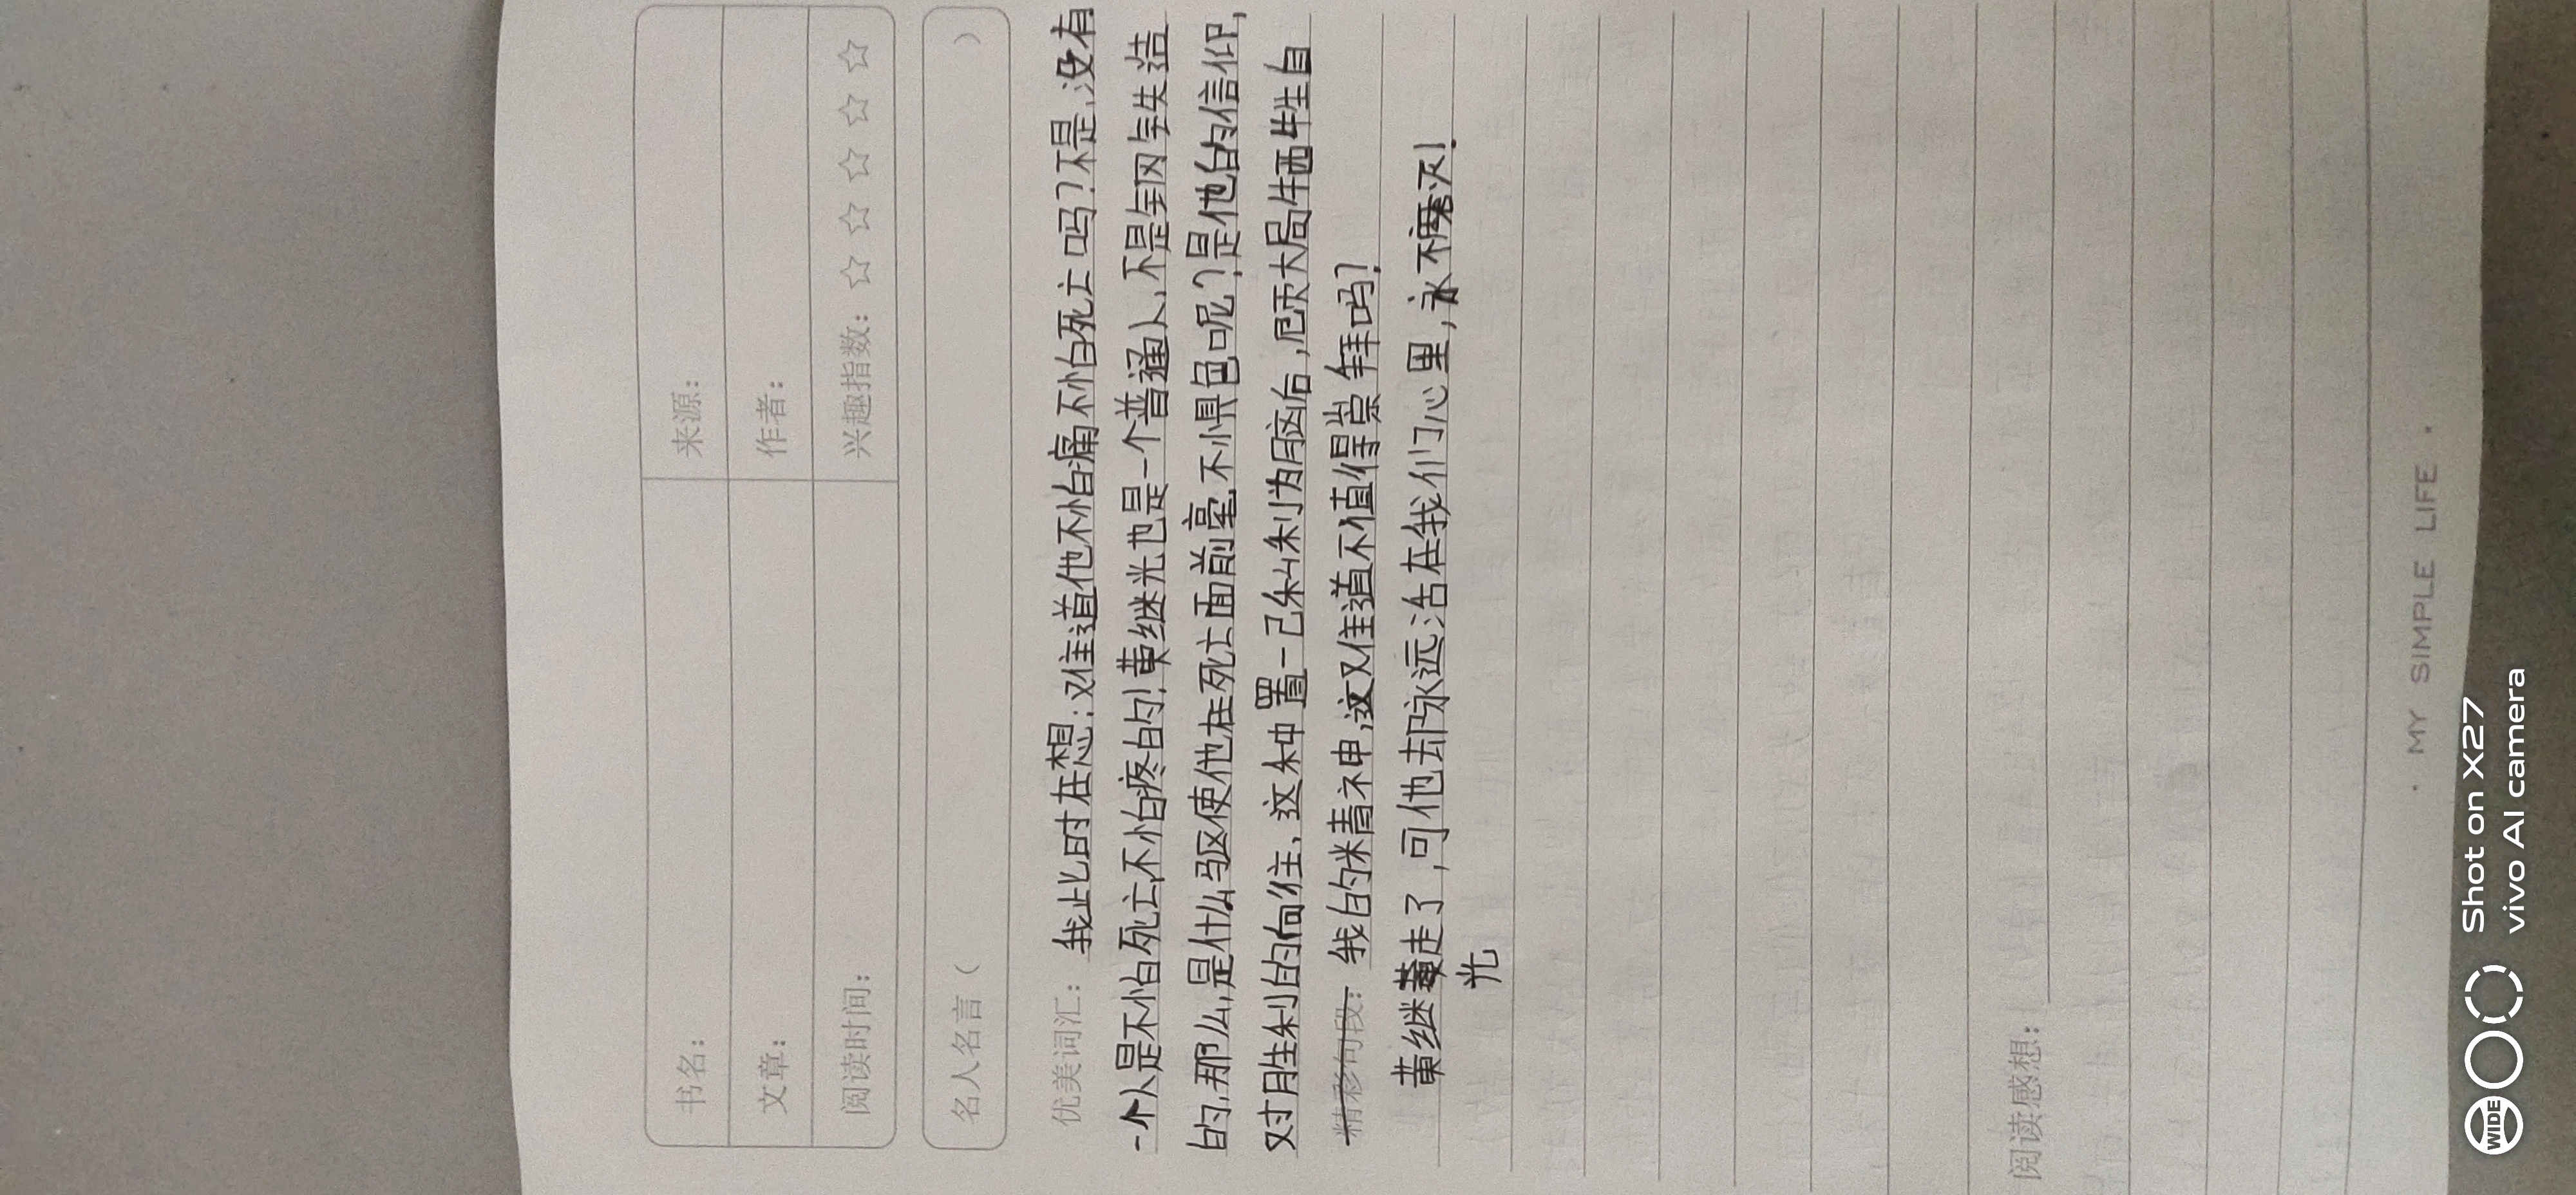 书名：
来源：
文章：
作者：
阅读时间：
兴趣指数：☆ ☆ ☆ ☆ ☆
名人名言（ ）
优美词汇：我此时在想：难道他不怕痛不怕死亡吗？不是，没有
一个人是不怕死亡，不怕疼的！黄继光也是一个普通人，不是钢铁造
的，那么，是什么驱使他在死亡面前毫不惧色呢？是他的信仰，
对胜利的向往，这种置一己私利为脑后，顾大局牺牲自
精彩句段：我的精神，这难道不值得崇拜吗？
黄继光走了，可他却永远活在我们心里，永不磨灭！
阅读感想：
· MY SIMPLE LIFE ·
WIDE
Shot on X27
vivo AI camera